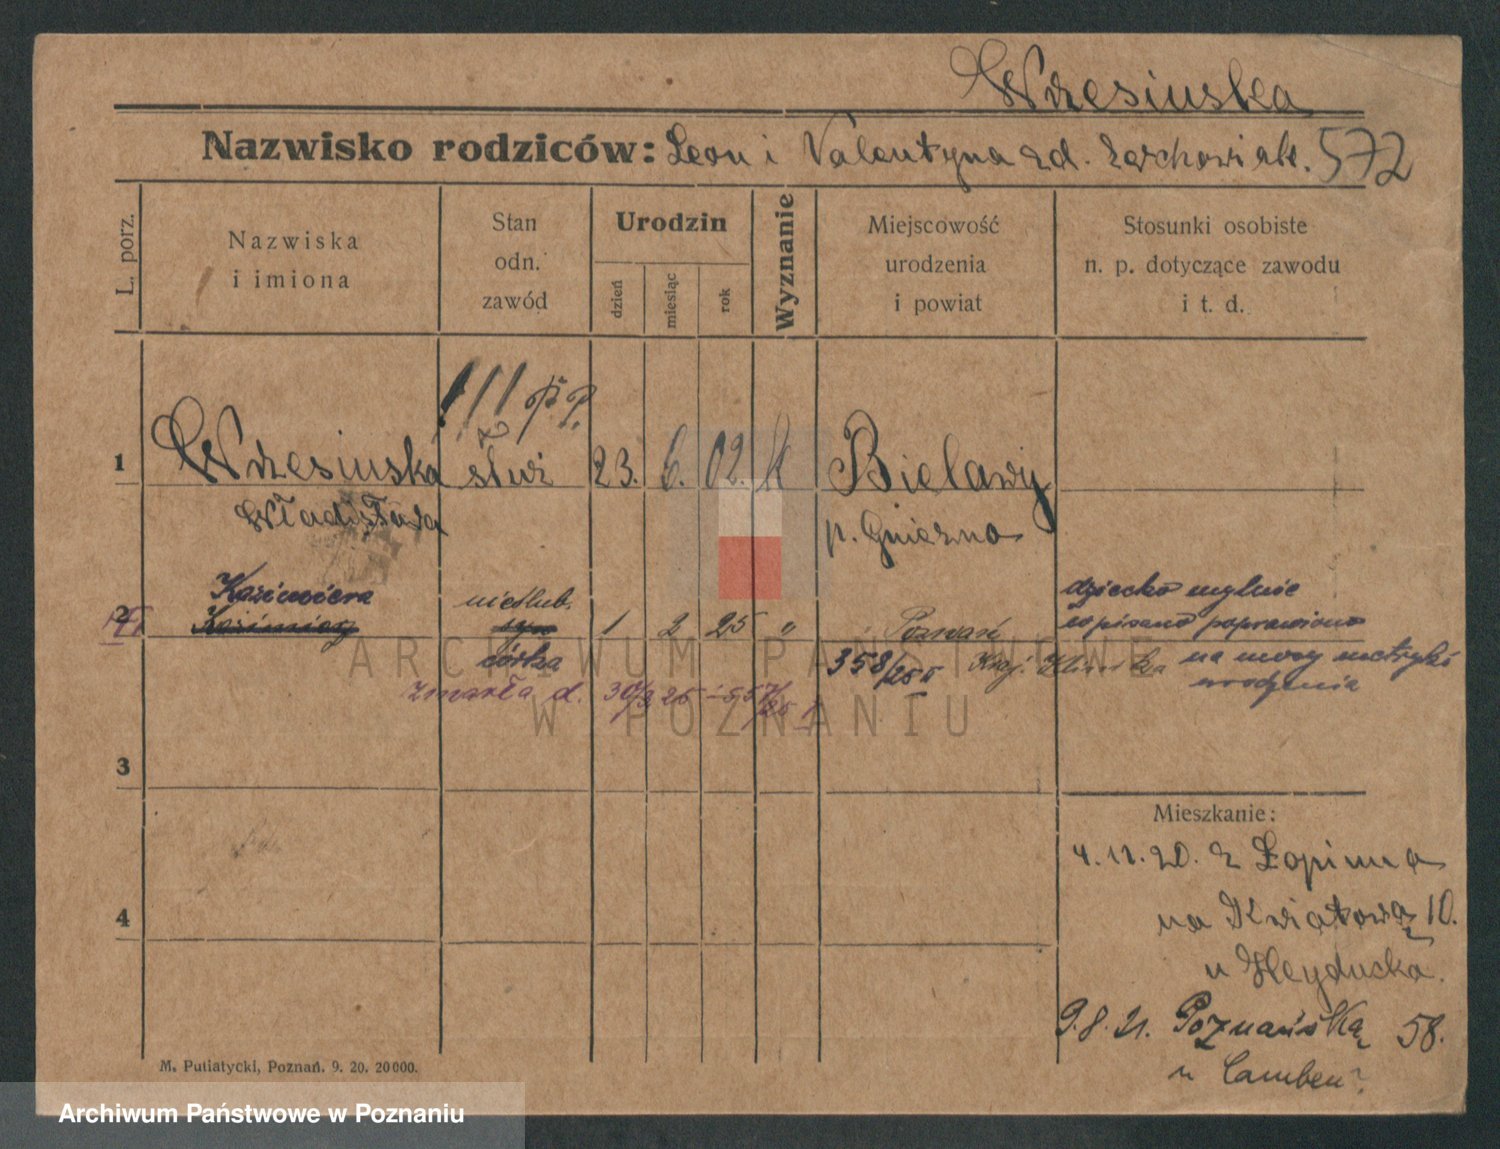 Wrzesińska
Nazwisko rodziców: Leon i Valentyna zd. 572
L. porz.
Nazwiska
i imiona
Stan
odn.
zawód
Urodzin
dzień
miesiąc
rok
Wyznanie
Miejscowość
urodzenia
i powiat
Stosunki osobiste
n. p. dotyczące zawodu
i t. d.
1 Wrzesińska służ 23. 6. 02. k Bielawy
Władysława p. Gniezno
Kazimiera nieślub. dziecko mylnie
2 Kazimierz syn 1 2 25 " Poznań wpisano poprawiono
córka 358/25 na mocy metryki
urodzenia
zmarła d. 30/3 25
3
4
Mieszkanie:
4.11.20. z Łopinna
na Kwiatową 10.
u Heyducka.
9.8.21. Poznańską 58.
u
M. Putiatycki, Poznań. 9. 20. 20000.
ARCHIWUM PAŃSTWOWE
W POZNANIU
Archiwum Państwowe w Poznaniu